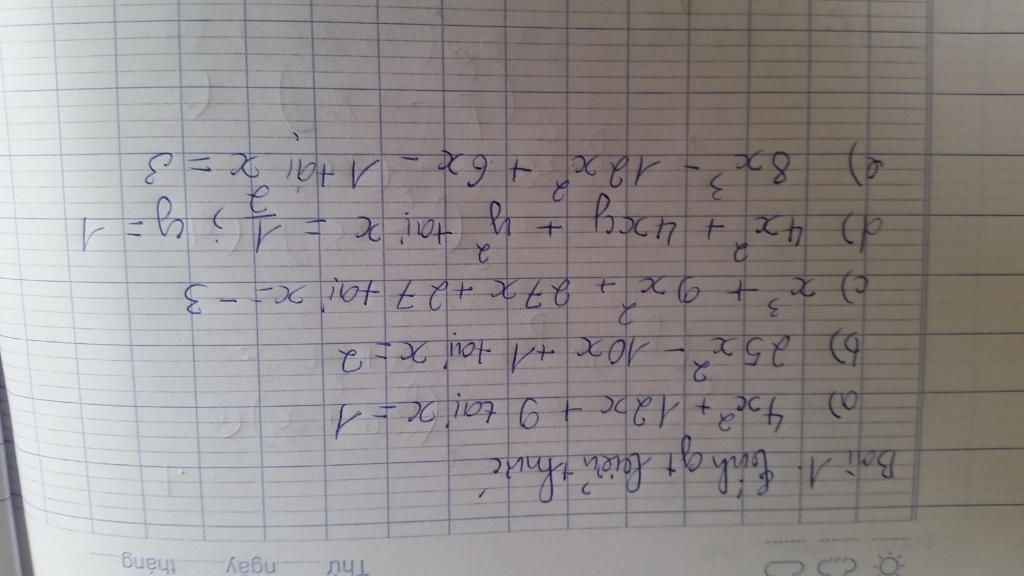 Thứ ngày tháng
Bài 1. Tính gt biểu thức
a) 4x² + 12x + 9 tại x = 1
b) 25x² - 10x + 1 tại x = 2
c) x³ + 9x² + 27x + 27 tại x = -3
d) 4x² + 4xy + y² tại x = 1/2 ; y = 1
e) 8x³ - 12x² + 6x - 1 tại x = 3